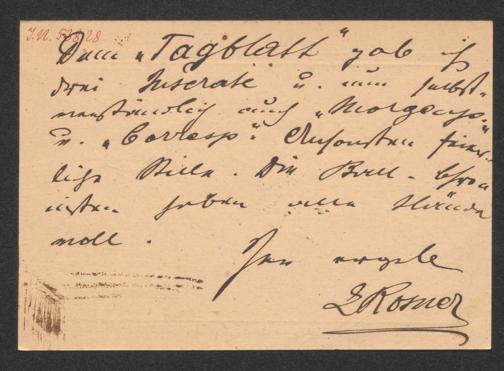 I.N. 53828
Dem „Tagblatt“ gab ich
drei Inserate u. nun selbst-
verständlich auch „Morgenp.“
u. „Corresp.“ Ansonsten feier-
liche Stille. Die Ball-Chro-
nisten haben alle Hände
voll.
Ihr ergeb
L Rosner